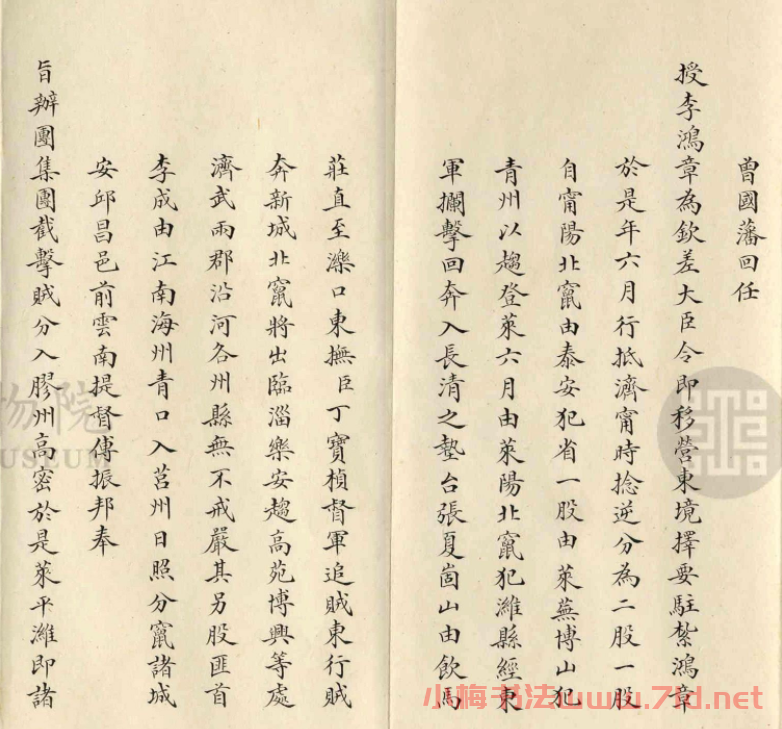 曾國藩回任
授李鴻章為欽差大臣令即移營東境擇要駐紮鴻章
於是年六月行抵濟甯時捻逆分為二股一股
自甯陽北竄由泰安犯省一股由萊蕪博山犯
青州以趨登萊六月由萊陽北竄犯濰縣經東
軍攔擊回奔入長清之墊台張夏崮山由飲馬
莊直至濼口東撫臣丁寶楨督軍追賊東行賊
奔新城北竄將出臨淄樂安趨高苑博興等處
濟武兩郡沿河各州縣無不戒嚴其另股匪首
李成由江南海州青口入莒州日照分竄諸城
安邱昌邑前雲南提督傅振邦奉
旨辦團集團截擊賊分入膠州高密於是萊平濰即諸
物院
USEUM
小梅书法www.7jd.net